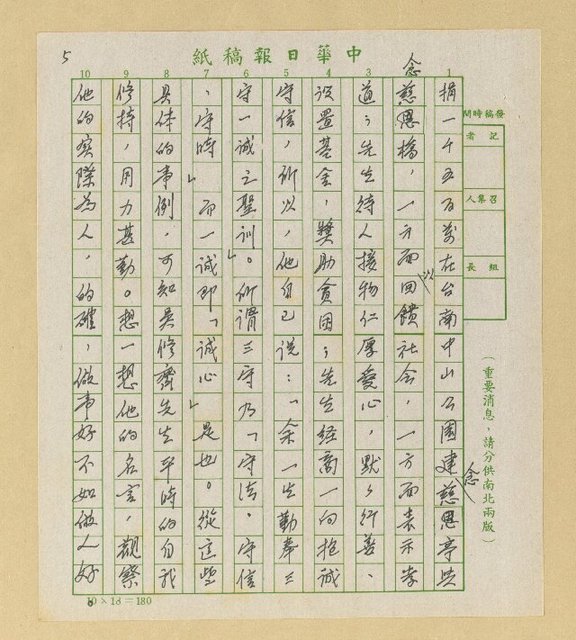 5
中華日報稿紙
發稿時間
記者
召集人
組長
（重要消息，請分供南北兩版）
1 2 3 4 5 6 7 8 9 10
捐一千五百萬在台南中山公園建念慈恩亭
念慈恩橋，一方面以回饋社會，一方面表示孝
道；先生待人接物仁厚愛心，默々行善、
設置基金，獎助貧困；先生經商一向抱誠
守信，所以，他自己說：「余一生勤奉三
守一誠之聖訓」。所謂三守乃「守法、守信
、守時」而一誠即「誠心」是也。從這些
具体的事例，可知吳修齊先生平時的自我
修持，用力甚勤。想一想他的名言，觀察
他的實際為人，的確，做事好不如做人好
。
10×18=180